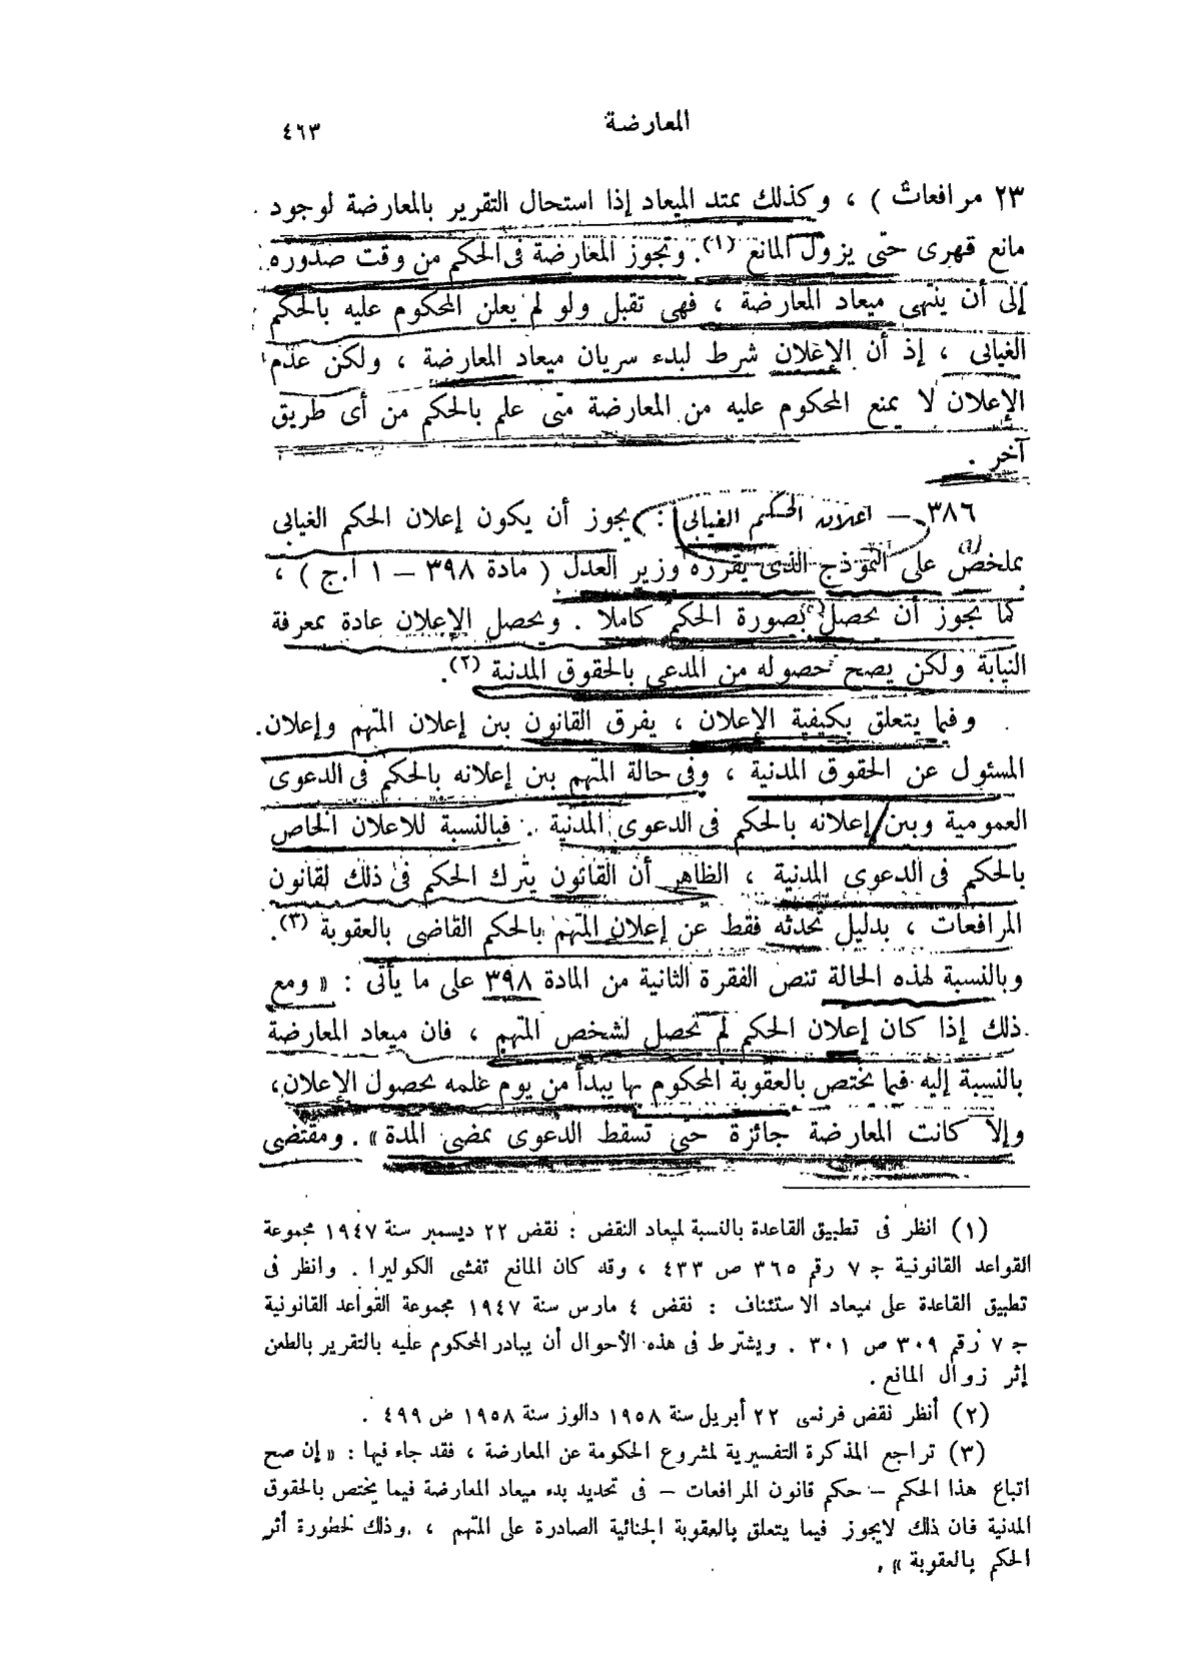 المعارضة
٤٦٣
٢٣ مرافعات ) ، وكذلك يمتد الميعاد إذا استحال التقرير بالمعارضة لوجود
مانع قهرى حتى يزول المانع (١) . وتجوز المعارضة فى الحكم من وقت صدوره
إلى أن ينتهى ميعاد المعارضة ، فهى تقبل ولو لم يعلن المحكوم عليه بالحكم
الغيابى ، إذ أن الإعلان شرط لبدء سريان ميعاد المعارضة ، ولكن عدم
الإعلان لا يمنع المحكوم عليه من المعارضة متى علم بالحكم من أى طريق
آخر .
٣٨٦ – اعلان الحكم الغيابى : يجوز أن يكون إعلان الحكم الغيابى
بملخص على النموذج الذى يقرره وزير العدل ( مادة ٣٩٨ – ١ ا.ج ) ،
كما يجوز أن يحصل بصورة الحكم كاملا . ويحصل الإعلان عادة بمعرفة
النيابة ولكن يصح حصوله من المدعى بالحقوق المدنية (٢) .
وفيما يتعلق بكيفية الإعلان ، يفرق القانون بين إعلان المتهم وإعلان
المسئول عن الحقوق المدنية ، وفى حالة المتهم بين إعلانه بالحكم فى الدعوى
العمومية وبين إعلانه بالحكم فى الدعوى المدنية . فبالنسبة للاعلان الخاص
بالحكم فى الدعوى المدنية ، الظاهر أن القانون يترك الحكم فى ذلك لقانون
المرافعات ، بدليل تحدثه فقط عن إعلان المتهم بالحكم القاضى بالعقوبة (٣) .
وبالنسبة لهذه الحالة تنص الفقرة الثانية من المادة ٣٩٨ على ما يأتى : « ومع
ذلك إذا كان إعلان الحكم لم يحصل لشخص المتهم ، فان ميعاد المعارضة
بالنسبة إليه فيما يختص بالعقوبة المحكوم بها يبدأ من يوم علمه بحصول الإعلان ،
وإلا كانت المعارضة جائزة حتى تسقط الدعوى بمضى المدة » . ومقتضى
(١) انظر فى تطبيق القاعدة بالنسبة لميعاد النقض : نقض ٢٢ ديسمبر سنة ١٩٤٧ مجموعة
القواعد القانونية ج ٧ رقم ٣٦٥ ص ٤٣٣ ، وقد كان المانع تفشى الكوليرا . وانظر فى
تطبيق القاعدة على ميعاد الاستئناف : نقض ٤ مارس سنة ١٩٤٧ مجموعة القواعد القانونية
ج ٧ رقم ٣٠٩ ص ٣٠١ . ويشترط فى هذه الأحوال أن يبادر المحكوم عليه بالتقرير بالطعن
إثر زوال المانع .
(٢) أنظر نقض فرنسى ٢٢ أبريل سنة ١٩٥٨ دالوز سنة ١٩٥٨ ص ٤٩٩ .
(٣) تراجع المذكرة التفسيرية لمشروع الحكومة عن المعارضة ، فقد جاء فيها : « إن صح
اتباع هذا الحكم – حكم قانون المرافعات – فى تحديد بدء ميعاد المعارضة فيما يختص بالحقوق
المدنية فان ذلك لايجوز فيما يتعلق بالعقوبة الجنائية الصادرة على المتهم ، وذلك لخطورة أثر
الحكم بالعقوبة » .